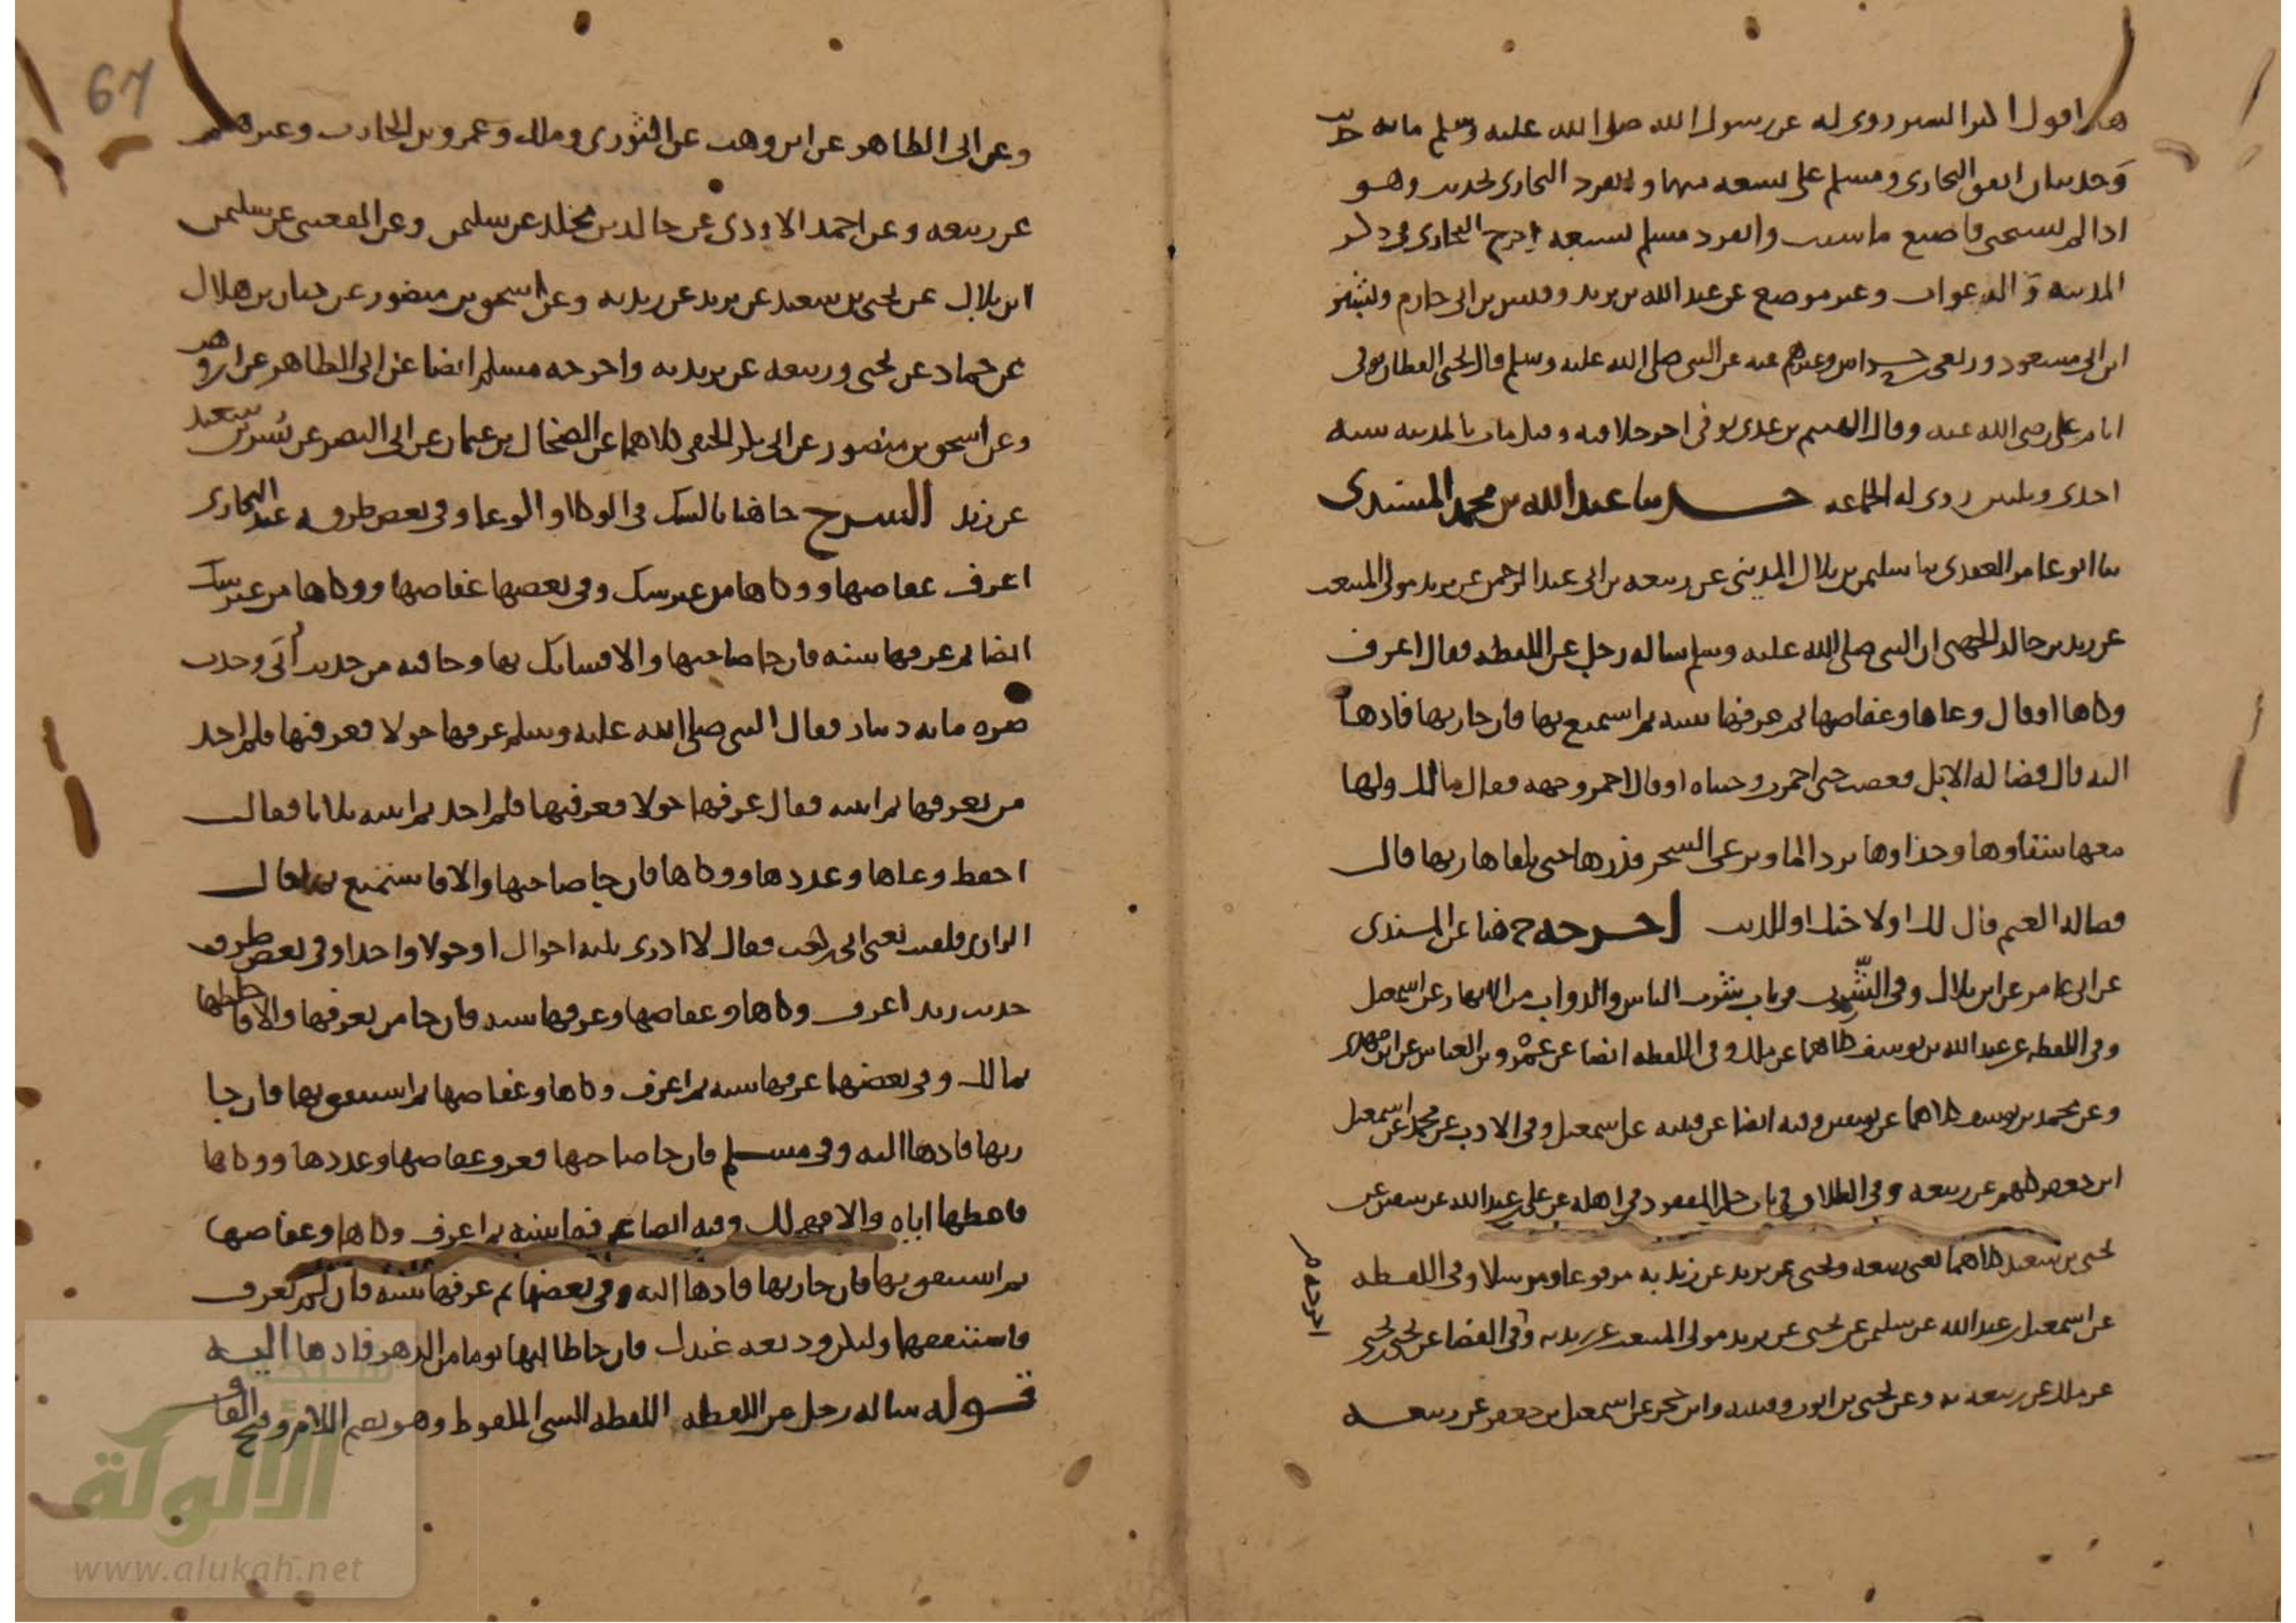 هذا قول اكثر السير روى له عن رسول الله صلى الله عليه وسلم مايه حديث
وحديثان اتفق البخارى ومسلم على تسعه منها وانفرد البخارى بحديث وهو
اذا لم تستحى فاصنع ما شيت وانفرد مسلم بسبعه اخرج البخارى فى ذكر
المدينه و الدعوات وغير موضع عن عبد الله بن يزيد وقيس بن ابى حازم وبشير
ابن ابى مسعود وربعى بن حراش وغيرهم عنه عن النبى صلى الله عليه وسلم قال يحيى القطان توفى
ايام على رضى الله عنه وقال الهيثم بن عدى توفى اخر خلافته وقيل مات بالمدينه سنه
احدى وثلثين روى له الجماعه حدثنا عبد الله بن محمد المسندى
ثنا ابو عامر العقدى ثنا سليمن بن بلال المدينى عن ربيعه بن ابى عبد الرحمن عن يزيد مولى المنبعث
عن زيد بن خالد الجهنى ان النبى صلى الله عليه وسلم ساله رجل عن اللقطه فقال اعرف
وكاها او قال وعاها وعفاصها ثم عرفها سنه ثم استمتع بها فان جا ربها فادها
اليه قال فضاله الابل فغضب حتى احمرت وجنتاه او قال احمر وجهه فقال مالك ولها
معها سقاوها وحذاوها ترد الما وترعى الشجر فذرها حتى يلقاها ربها قال
فضاله الغنم قال لك او لاخيك او للذيب اخرجه خ هنا عن المسندى
عن ابى عامر عن ابن بلال وفى الشرب فى باب شرب الناس والدواب من الانهار عن اسمعيل
وفى اللقطه عن عبد الله بن يوسف كلاهما عن ملك وفى اللقطه ايضا عن عمرو بن العباس عن ابن مهدى
وعن محمد بن يوسف كلاهما عن سفين وفيه ايضا عن قتيبه عن اسمعيل وفى الادب عن محمد عن اسمعيل
ابن جعفر كلهم عن ربيعه وفى الطلاق فى باب حكم المفقود فى اهله عن على بن عبد الله عن سفين عن
يحيى بن سعيد كلاهما يعنى ربيعه ويحيى عن يزيد عن زيد به مرفوعا ومرسلا وفى اللقطه
عن اسمعيل بن عبد الله عن سليمن عن يحيى عن يزيد مولى المنبعث عن زيد به وفى القضا عن يحيى بن يحيى
عن ملك عن ربيعه به وعن يحيى بن ايوب وقتيبه وابن حجر عن اسمعيل بن جعفر عن ربيعه
اخرجه م
67
وعن ابى الطاهر عن ابن وهب عن الثورى وملك وعمرو بن الحارث وغيرهم
عن ربيعه وعن احمد الاودى عن خالد بن مخلد عن سليمن وعن القعنبى عن سليمن
ابن بلال عن يحيى بن سعيد عن يزيد عن زيد به وعن اسحق بن منصور عن حبان بن هلال
عن حماد عن يحيى وربيعه عن يزيد به واخرجه مسلم ايضا عن ابى الطاهر عن ابن وهب
وعن اسحق بن منصور عن ابى بكر الحنفى كلاهما عن الضحاك بن عثمان عن ابى النضر عن بسر بن سعيد
عن زيد الشرح جا هنا بالشك فى الوكا او الوعا وفى بعض طرقه عند البخارى
اعرف عفاصها ووكاها من غير شك وفى بعضها عفاصها ووكاها من غير شك
ايضا ثم عرفها سنه فان جا صاحبها والا فشانك بها وجا فيه من حديث ابى وجدت
صره مايه دينار فقال النبى صلى الله عليه وسلم عرفها حولا فعرفتها فلم اجد
من يعرفها ثم اتيته فقال عرفها حولا فعرفتها فلم اجد ثم اتيته ثلاثا فقال
احفظ وعاها وعددها ووكاها فان جا صاحبها والا فاستمتع بها قال
الراوى فلقيت يعنى ابى بن كعب فقال لا ادرى ثلثه احوال او حولا واحدا وفى بعض طرق
حديث زيد اعرف وكاها وعفاصها وعرفها سنه فان جا من يعرفها والا فاخلطها
بمالك وفى بعضها عرفها سنه ثم اعرف وكاها وعفاصها ثم استنفق بها فان جا
ربها فادها اليه وفى مسلم فان جا صاحبها فعرف عفاصها وعددها ووكاها
فاعطها اياه والا فهى لك وفيه ايضا عرفها سنه ثم اعرف وكاها وعفاصها
ثم استنفق بها فان جا ربها فادها اليه وفى بعضها ثم عرفها سنه فان لم تعرف
فاستنفقها ولتكن وديعه عندك فان جا طالبها يوما من الدهر فادها اليه
قوله ساله رجل عن اللقطه اللقطه الشى الملقوط وهو بضم اللام وفتح القاف
الألوكة
www.alukah.net